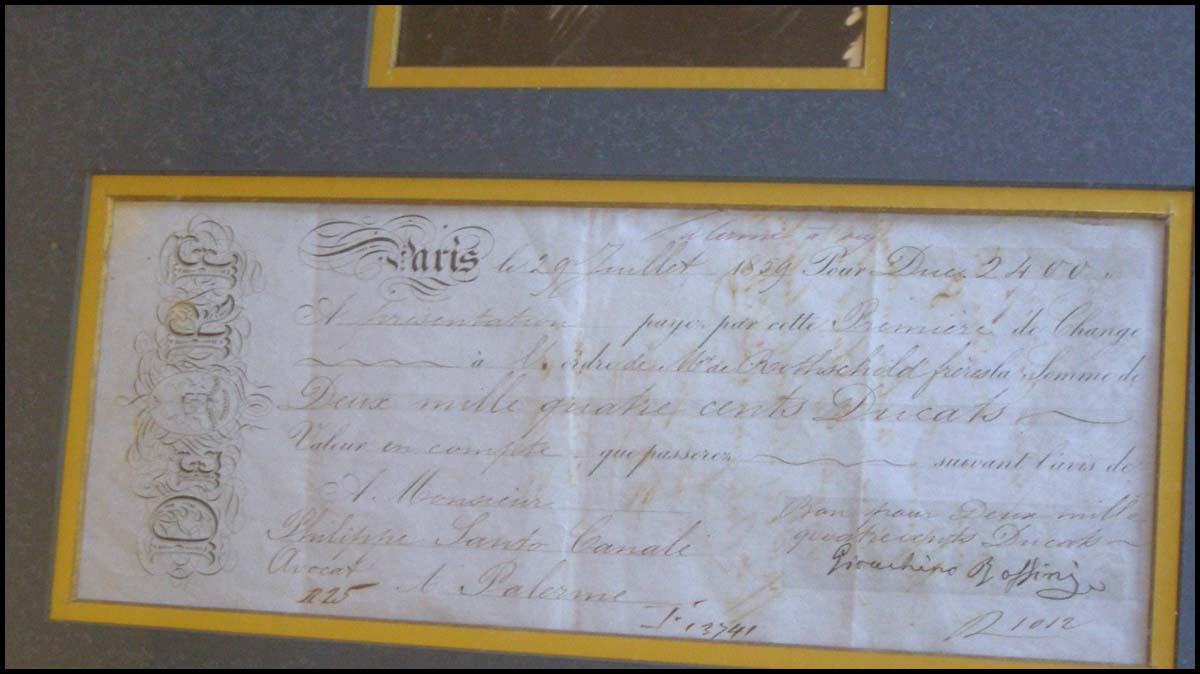 Paris le 29 Juillet 1859 Pour Duc. 2400
A présentation payez par cette Première de Change
à l'ordre de Mrs de Rothschild frères la Somme de
Deux mille quatre cents Ducats
Valeur en compte que passerez suivant l'avis de
A Monsieur
Philippe Santo Canale
Avocat
A Palerme
Bon pour Deux mille
quatre cents Ducats
Gioachino Rossini
1125
13741
1012